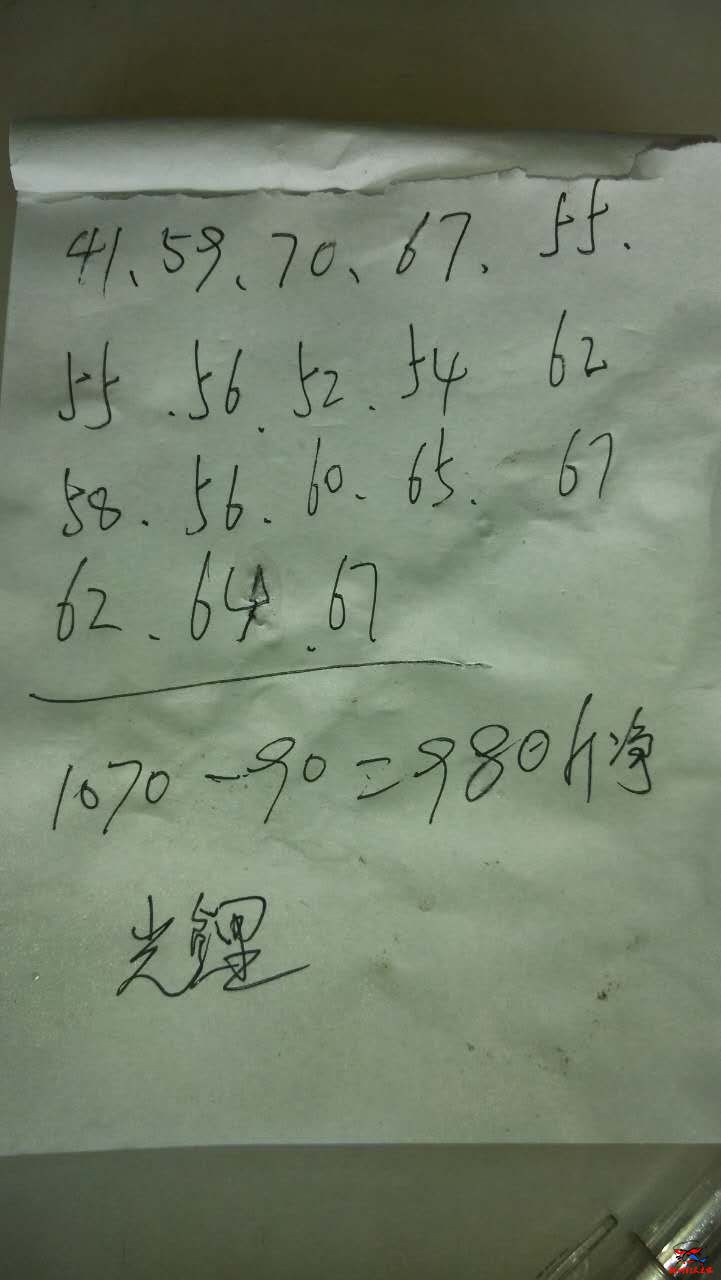 41、59、70、67、55、
55.56.52.54 62
58.56.60.65.67
62、64.67
1070-90=980斤净
光鲤